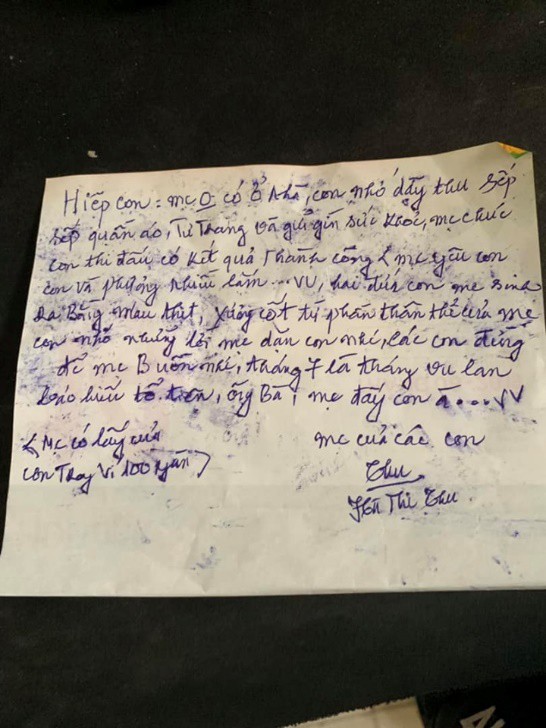 Hiếp con = mẹ O có ở nhà, con nhớ dậy thu sếp
sếp quần áo, Tư Trang và giữ gìn sức khỏe, mẹ chúc
con thi đấu có kết quả Thành công & mẹ yêu con
con và phượng nhiều lắm...VV, hai đứa con mẹ sinh
Ra Bằng máu thịt, xương cốt từ phần thân thể của mẹ
con nhớ những lời mẹ dặn con nhé, các con đừng
để mẹ Buồn nhé, tháng 7 là tháng vu lan
báo hiếu tổ tiên, ông Bà, mẹ đấy con ạ...VV
mẹ của các con
Thu
Thị Thu
(Mẹ có lấy của
con Thay Vì 100 ngàn)